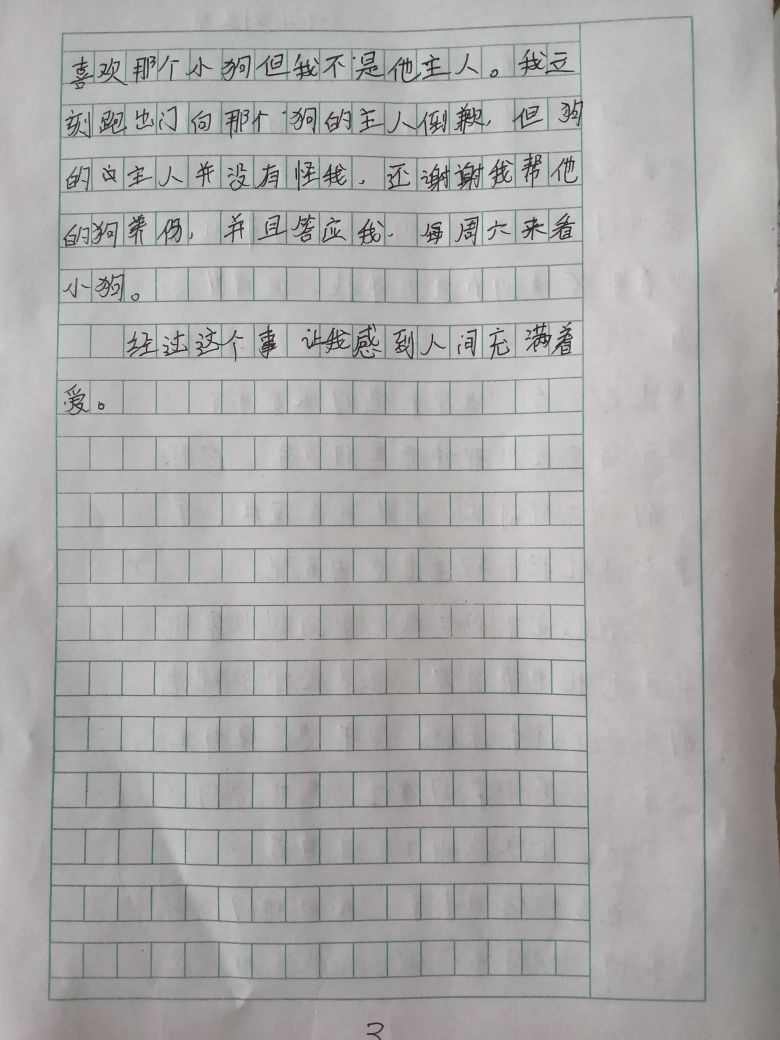 喜欢那个小狗但我不是他主人。我立
刻跑出门向那个狗的主人倒歉,但狗
的主人并没有怪我,还谢谢我帮他
的狗养伤,并且答应我,每周六来看
小狗。
经过这个事让我感到人间充满着
爱。
3